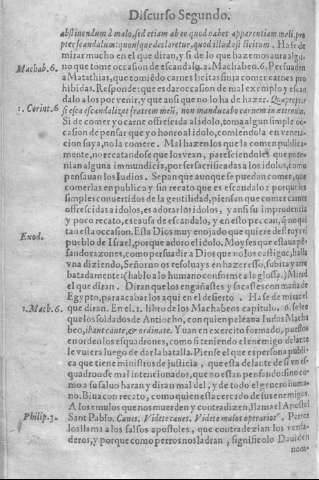 Discurso Segundo.
abstinendum à malo, sed etiam ab eo quod habet apparentiam mali, pro
pter scandalum: quousque declaretur, quod illud sit licitum. Hase de
mirar mucho en el que diran, y si de lo que hazemos aura algu
no que tome ocasion de escandalo. a. Machabeo. 6. Persuadian
Machab. 6.
a Matathias, que comiedo carnes licitas fingia comer carnes pro
hibidas. Responde: que es dar ocasion de mal exemplo y escan
dalo a los por venir, y que ansi que no lo ha de hazer. Quapropter
1. Corint. 6
si esca escandalizet fratrem meũ, non manducabo carnem in eternum.
Si de comer yo carne ofrescida al idolo, toma algun simple oc-
casion de pensar que yo honro al idolo, comiendola en venera-
cion suya, no la comere. Mal hazen los que la comen publica-
mente, no recatandose que los vean, paresciendoles que
nian alguna immundicia, por ser sacrificadas a los idolos, como
pensauan los Iudios. Sepan que aunque se puedan comer, que
comerlas en publico y sin recato que es escandalo: porque los
simples conuertidos de la gentilidad, piensan que comer carnes
ofrescidas a idolos, es adorar los idolos, y ansi su imprudentia
y poco recato, es causa de escandalo, y en esto peccan, q no qui
tan esta occasion. Esta Dios muy enojado que quiere destroyr el
Exod.
pueblo de Israel, porque adoro el idolo. Moysen que estaua pē-
sando razones, como persuadir a Dios que no los castigue, halla
vna diziendo, Señor no os resoluays en hazer esso, subita y arre
batadamente: (habla a lo humano conforme a la glossa.) Mirad
el que diran. Diran que los engañastes y sacastes con maña de
Egypto, para acabarlos aqui en el desierto. Hase de mirar el
1. Mach. 6.
que diran. En el. 1. libro de los Machabeos capitulo. 6. sobre
que los soldados de Antiocho, con quien peleaua Iudas Macha
beo, ibant caute, &amp; ordinate. Yuan en exercito formado, puestos
en orden los esquadrones, como si teniendo el enemigo delante
le vuiera luego de dar la batalla. Piense el que es persona publi-
ca que tiene ministros de justicia, que esta delante de si vn es-
quadron de mal intencionados, que no estan pensando sino co-
mo a su saluo haran y diran mal del, y de todo el genero huma-
no. Biua con recato, como quien esta cercado de sus enemigos.
A los emulos que nos muerden y contradizen, llama el Apostol
Philip. 3.
Sant Pablo. Canes. Videte canes. Videte malos operarios.
los llama a los falsos apostoles, que contradezian los verda-
deros, y porque como perros nos ladran, significolo Dauid en
nom-